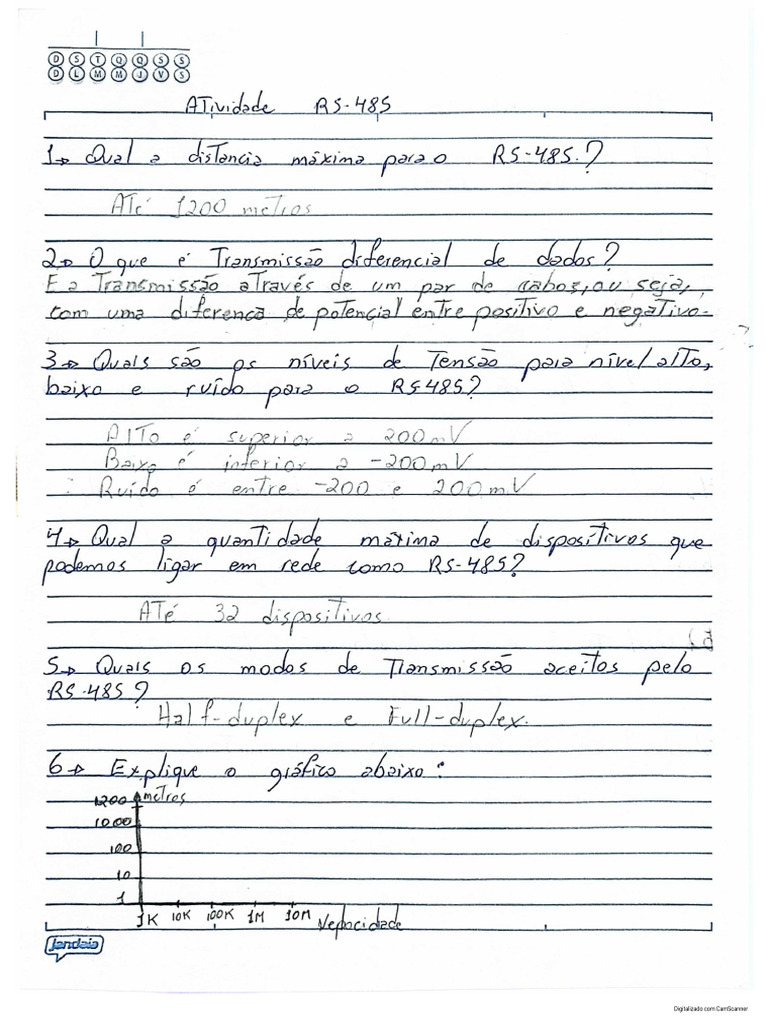 D S T Q Q S S
D L M M J V S
Atividade RS-485
1→ Qual a distancia máxima para o RS-485.?
Até 1200 metros
2→ O que é Transmissão diferencial de dados?
E a Transmissão através de um par de cabos, ou seja,
com uma diferenca de potencial entre positivo e negativo.
3→ Quais são os níveis de Tensão para nível alto,
baixo e ruído para o RS485?
Alto é superior a 200mV
Baixo é inferior a -200mV
Ruído é entre -200 e 200mV
4→ Qual a quantidade máxima de dispositivos que
podemos ligar em rede como RS-485?
Até 32 dispositivos
5→ Quais os modos de Transmissão aceitos pelo
RS-485?
Half-duplex e Full-duplex.
6→ Explique o gráfico abaixo:
1200 metros
1000
100
10
1
1K 10K 100K 1M 10M Velocidade
jandaia
Digitalizado com CamScanner